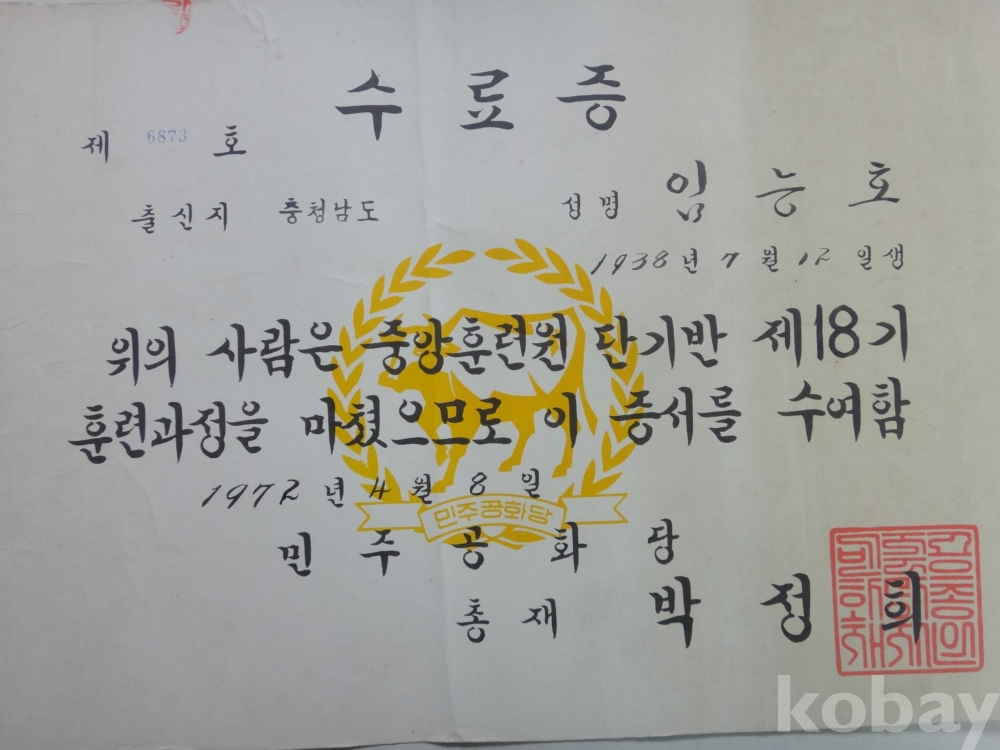 수료증
제 6873 호
출신지 충청남도
성명 임능호
1938년 7월 12일생
위의 사람은 중앙훈련원 단기반 제18기
훈련과정을 마쳤으므로 이 증서를 수여함
1972년 4월 8일
민주공화당
민주공화당
총재 박정희
kobay